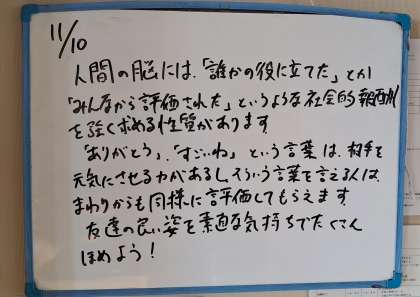 11/10
人間の脳には、「誰かの役に立てた」とか
「みんなから評価された」というような社会的報酬
を強く求める性質があります
「ありがとう」、「すごいね」という言葉は、相手を
元気にさせる力があるし、そういう言葉を言える人は、
まわりからも同様に評価してもらえます。
友達の良い姿を素適な気持ちでたくさん
ほめよう!